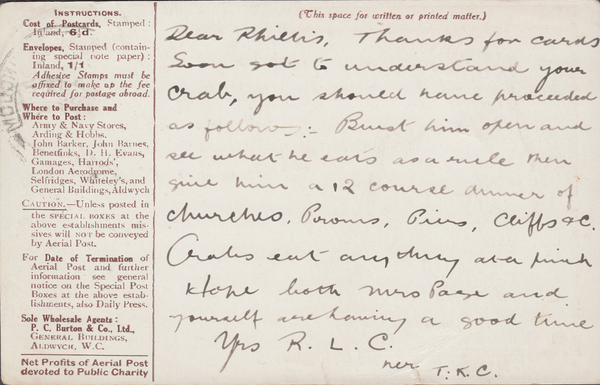 INSTRUCTIONS.
Cost of Postcards, Stamped :
Inland, 6½d.
Envelopes, Stamped (contain-
ing special note paper) :
Inland, 1/1
Adhesive Stamps must be
affixed to make up the fee
required for postage abroad.
Where to Purchase and
Where to Post :
Army & Navy Stores,
Arding & Hobbs.
John Barker, John Barnes,
Benetfinks, D. H. Evans,
Gamages, Harrods',
London Aerodrome,
Selfridges, Whiteley's, and
General Buildings, Aldwych
CAUTION.—Unless posted in
the SPECIAL BOXES at the
above establishments mis-
sives will NOT be conveyed
by Aerial Post.
For Date of Termination of
Aerial Post and further
information see general
notice on the Special Post
Boxes at the above estab-
lishments, also Daily Press.
Sole Wholesale Agents :
P. C. Burton & Co., Ltd.,
GENERAL BUILDINGS,
ALDWYCH, W.C.
Net Profits of Aerial Post
devoted to Public Charity
(This space for written or printed matter.)
Dear Thanks for cards
Soon got to understand your
crab, you should have proceeded
as follows :- Burst him open and
see what he eats as a rule then
give him a 12 course dinner of
churches, Proms, Piers, Cliffs &c.
Crabs eat anything at a pinch
Hope both Mrs Page and
yourself are having a good time
Yrs R. L. C.
T. K. C.